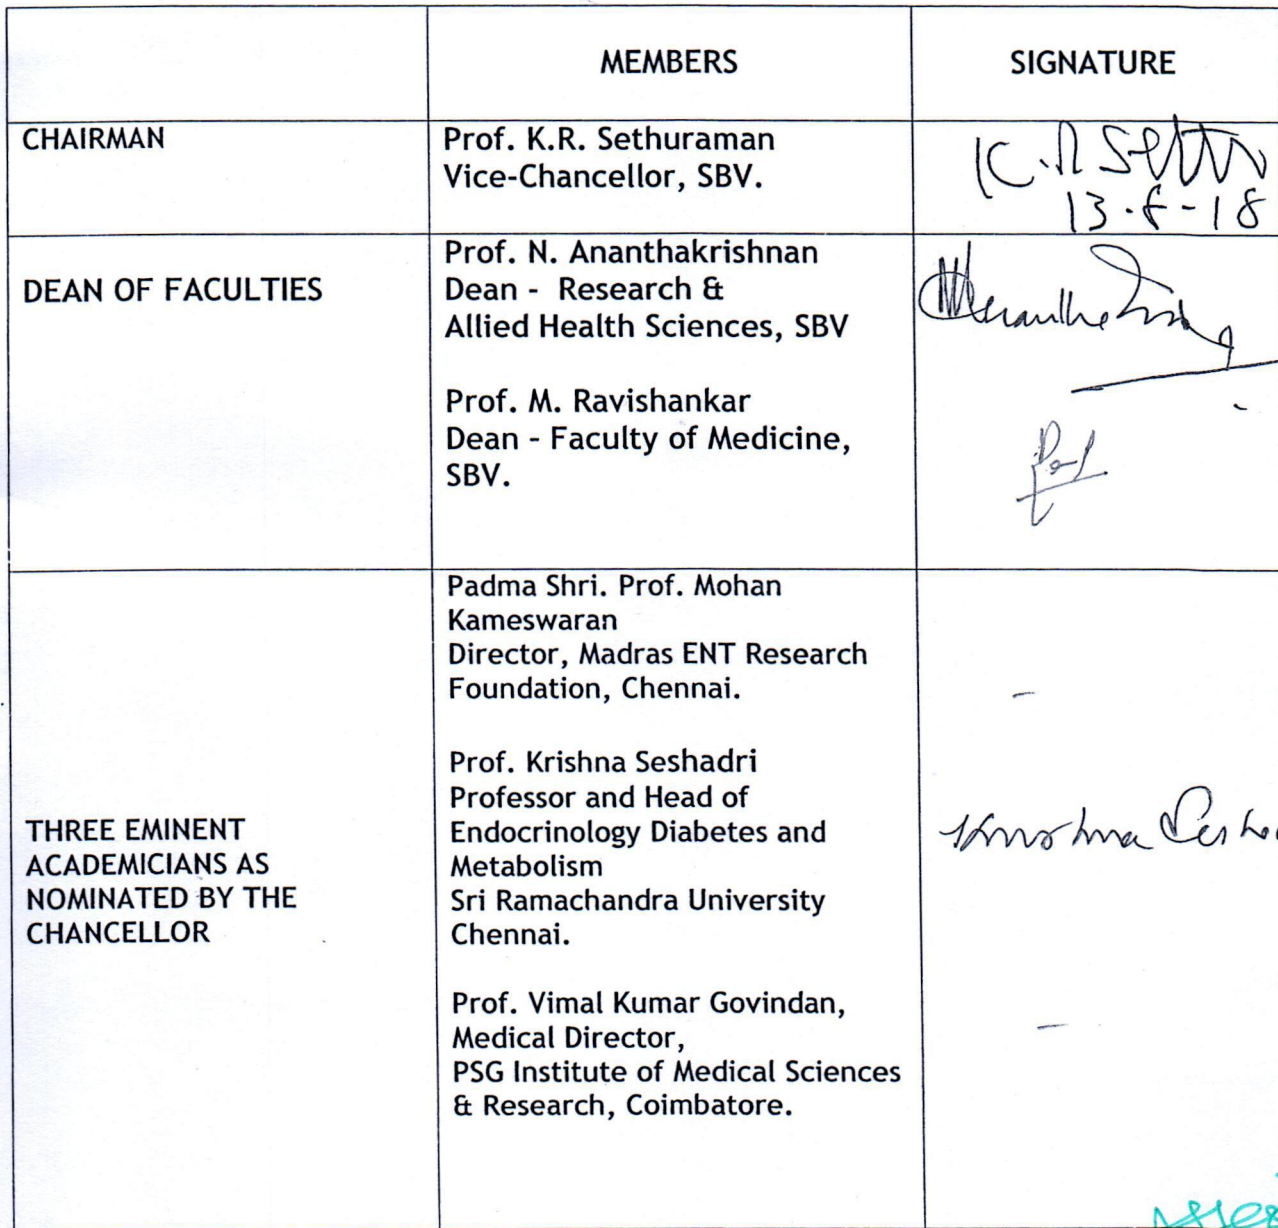 MEMBERS SIGNATURE
CHAIRMAN
Prof. K.R. Sethuraman
Vice-Chancellor, SBV.
K.R Seth
13.8-18
DEAN OF FACULTIES
Prof. N. Ananthakrishnan
Dean - Research &
Allied Health Sciences, SBV
Prof. M. Ravishankar
Dean - Faculty of Medicine,
SBV.
THREE EMINENT
ACADEMICIANS AS
NOMINATED BY THE
CHANCELLOR
Padma Shri. Prof. Mohan
Kameswaran
Director, Madras ENT Research
Foundation, Chennai.
-
Prof. Krishna Seshadri
Professor and Head of
Endocrinology Diabetes and
Metabolism
Sri Ramachandra University
Chennai.
Krishna
Prof. Vimal Kumar Govindan,
Medical Director,
PSG Institute of Medical Sciences
& Research, Coimbatore.
-